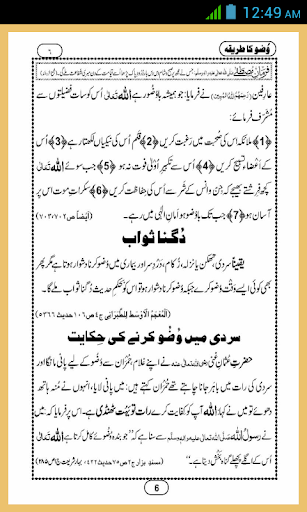 12:49 AM
وُضو کا طریقہ
٦
عارفین (رَحِمَہُمُ اللہُ المُبین) نے فرمایا: جو ہمیشہ باوُضو رہے اللہ تعالیٰ اُس کو سات فضیلتوں سے
مُشرَّف فرمائے:
﴿1﴾ ملائکہ اس کی صُحبت میں رَغبت کریں ﴿2﴾ قلم اُس کی نیکیاں لکھتا رہے ﴿3﴾ اُس
کے اَعضاء تسبیح کریں ﴿4﴾ اُس سے تکبیرِ اُولیٰ فوت نہ ہو ﴿5﴾ جب سوئے اللہ تعالیٰ
کچھ فِرشتے بھیجے کہ جِنّ و اِنس کے شَر سے اُس کی حفاظت کریں ﴿6﴾ سکراتِ موت اس پر
آسان ہو ﴿7﴾ جب تک باوُضو ہو اَمانِ الٰہی میں رہے۔ (اَیضاً ص ٧٠٢،٧٠٣)
دُگنا ثواب
یقیناً سردی، تھکن یا نزلہ، زُکام، دردِ سر اور بیماری میں وُضو کرنا دشوار ہوتا ہے مگر پھر
بھی کوئی ایسے وَقت وُضو کرے جبکہ وُضو کرنا دشوار ہو تو اُس کو بحکمِ حدیث دُگنا ثواب ملے گا۔
(اَلْمُعْجَمُ الْاَوْسَط لِلطَّبَرَانِی ج٤ ص١٠٦ حدیث ٥٣٦٦)
سردی میں وُضو کرنے کی حِکایت
حضرتِ عثمانِ غنی رضی اللہ تعالیٰ عنہ نے اپنے غلام حُمران سے وُضو کے لیے پانی مانگا اور
سردی کی رات میں باہر جانا چاہتے تھے حُمران کہتے ہیں: میں پانی لایا، اُنہوں نے منہ ہاتھ
دھوئے تو میں نے کہا: اللہ آپ کو کفایت کرے رات تو بہت ٹھنڈی ہے۔ اس پر فرمایا کہ میں
نے رسولُ اللہ صلی اللہ تعالیٰ علیہ واٰلہٖ وسلم سے سنا ہے کہ ”جو بندہ وُضوئے کامل کرتا ہے اللہ تعالیٰ
اُس کے اگلے پچھلے گناہ بخش دیتا ہے۔“ (مسند بزار ج٢ ص٧٥ حدیث ٤٢٢، بہارِ شریعت ج١ ص٢٨٥)
6